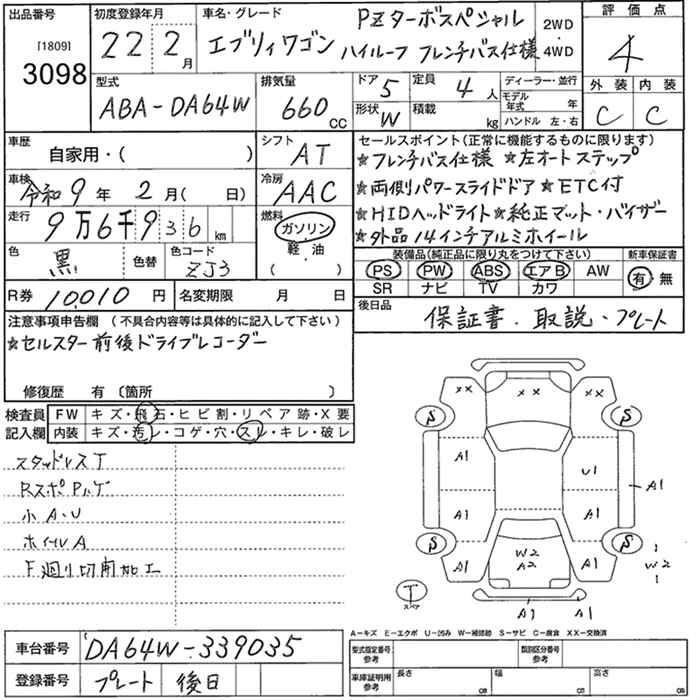 出品番号
［1809］
3098
初度登録年月
22年2月
車名・グレード
PZターボスペシャル
エブリィワゴン ハイルーフ フレンチバス仕様
2WD
・
4WD
評価点
4
型式
ABA-DA64W
排気量
660 CC
ドア 5
定員 4 人
形状 W
積載 kg
ディーラー・並行
モデル年式 年
ハンドル 左・右
外装 内装
C C
車歴
自家用・( )
シフト
AT
車検
令和9年2月( 日)
冷房
AAC
走行
9万6千936 km
燃料
ガソリン
軽・油
( )
色
黒
色替
色コード
ZJ3
R券 10,010 円
名変期限 月 日
セールスポイント(正常に機能するものに限ります)
★フレンチバス仕様 ★左オートステップ
★両側パワースライドドア ★ETC付
★HIDヘッドライト★純正マット・バイザー
★外品14インチアルミホイール
装備品(純正品に限り丸をつけて下さい) 新車保証書
PS PW ABS エアB AW 有・無
SR ナビ TV カワ
後日品
保証書．取説・プレート
注意事項申告欄 (不具合内容等は具体的に記入して下さい)
★セルスター前後ドライブレコーダー
修復歴 有〔箇所 〕
検査員 FW キズ・飛石・ヒビ割・リペア跡・X要
記入欄 内装 キズ・汚レ・コゲ・穴・スレ・キレ・破レ
スタッドレスT
RスポPハゲ
小A・U
ホイールA
F廻り切用加工
×× ×× ××
S S
A1 U1
A1 A1 A1
S S
A1 W2 A2 A1 W2
T
スペア
A1 A1
A-キズ E-エクボ U-凹み W-補修跡 S-サビ C-腐食 XX-交換済
車台番号 DA64W-339035
登録番号 プレート 後日
型式指定番号 参考
類別区分番号 参考
車庫証明用 参考
長さ cm 幅 cm 高さ cm